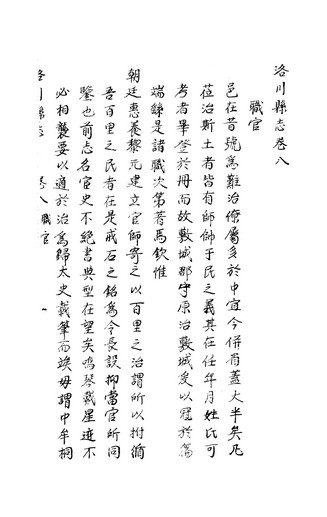 洛川縣志卷八
職官
邑在昔號爲難治僚屬多於中宜今併省蓋大半矣凡
莅治斯土者皆有師帥于民之義其在任年月姓氏可
考者畢登於冊而故敷城郡守原治敷城爰以冠於篇
端餘是諸職次第著焉欽惟
朝廷惠養黎元建立官師寄之以百里之治謂所以拊循
吾百里之民者在是戒石之銘爲令長設抑當官所同
鑒也前志名宦史不絶書典型在望矣鳴琴戴星迹不
必相襲要以適於治爲歸太史載筆而竢毋謂中牟桐
洛川縣志 卷八職官 一